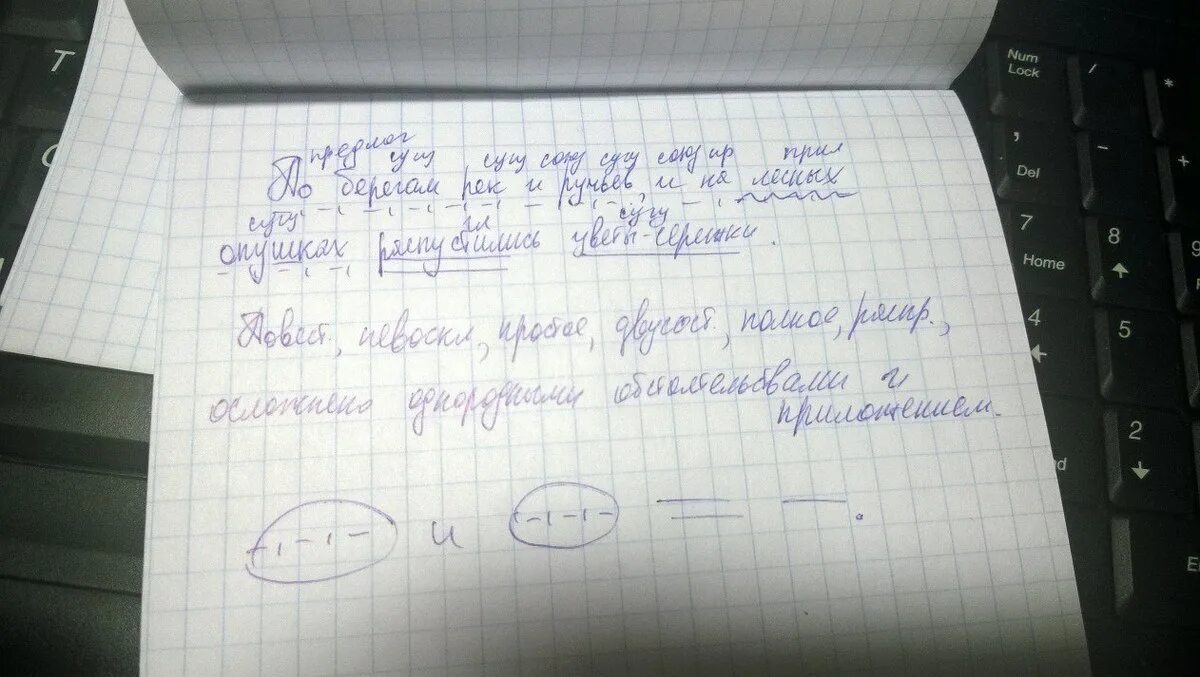 предлог сущ сущ союз сущ союз пр прил
По берегам рек и ручьев, и на лесных
сущ гл сущ
опушках распустились цветы-сережки.
Повест., невоскл., простое, двусост., полное, распр.,
осложнено однородными обстоятельствами и
приложением.
и
T
Num Lock
/
*
,
Del
-
+
7
Home
8
9
4
5
2